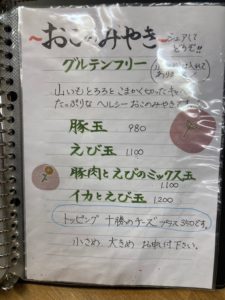 ～おこのみやき～
シェアして
どうぞ!!
グルテンフリー
山いもとろろと こまかく切ったキャ
たっぷりな ヘルシーおこのみやきです
豚玉 980
えび玉 1100
豚肉とえびのミックス玉
1100
イカとえび玉 1200
トッピング 十勝のチーズ プラス350です。
小さめ 大きめ お申付下さい。